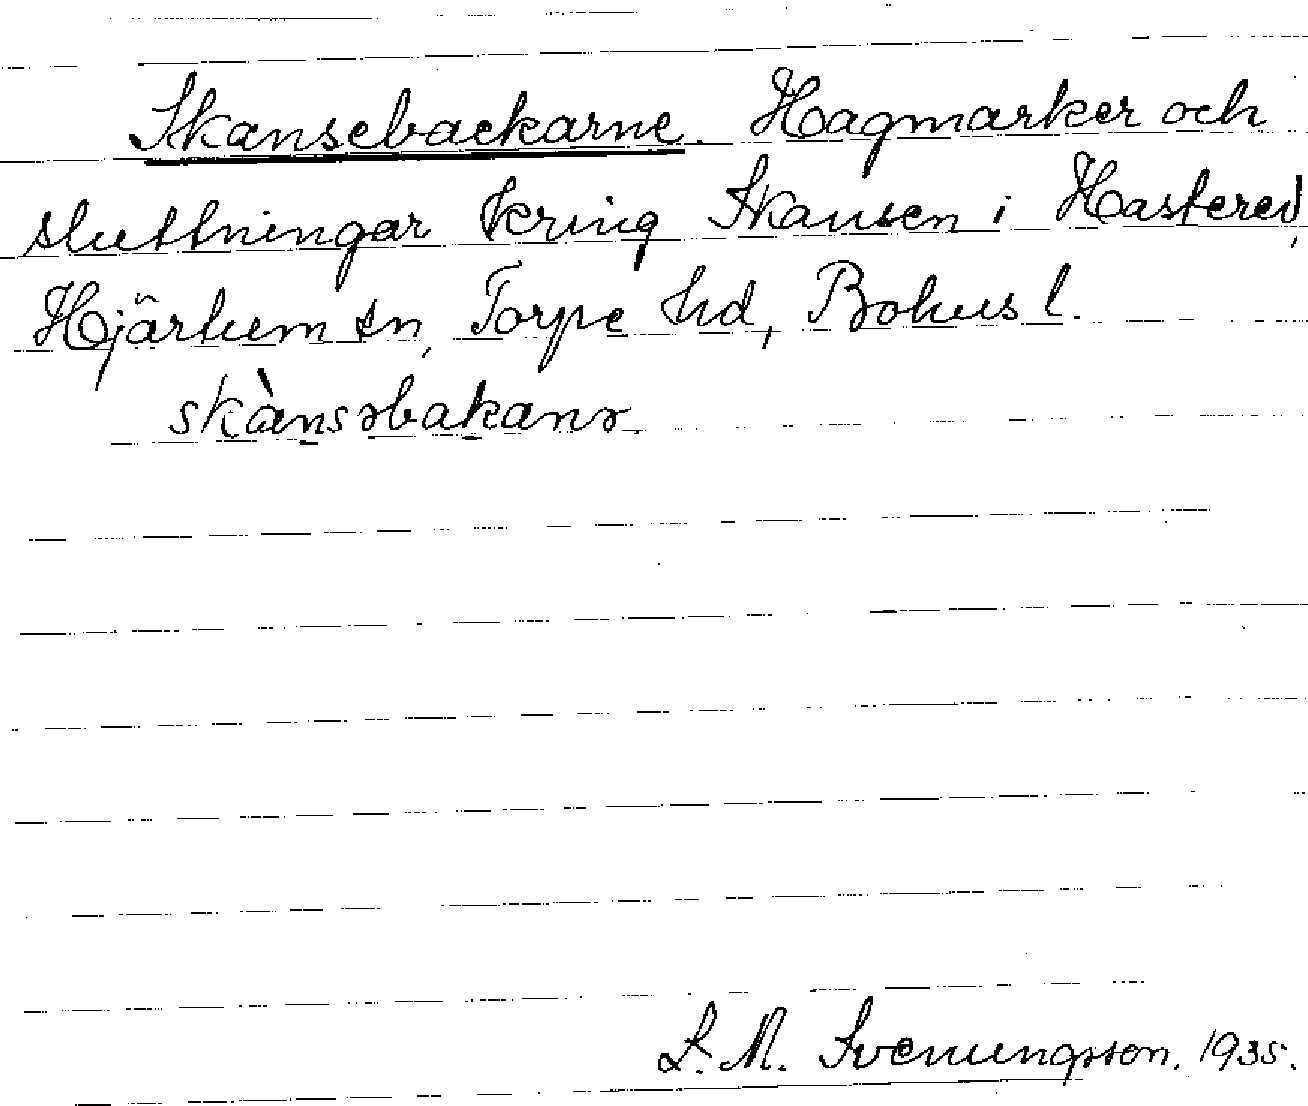 Skansebackarne. Hagmarker och
sluttningar kring Skansen i Hasteröd,
Hjärtum sn, Torpe hd, Bohus l.
skànsəbakanə
L. M. Svenungsson. 1935.